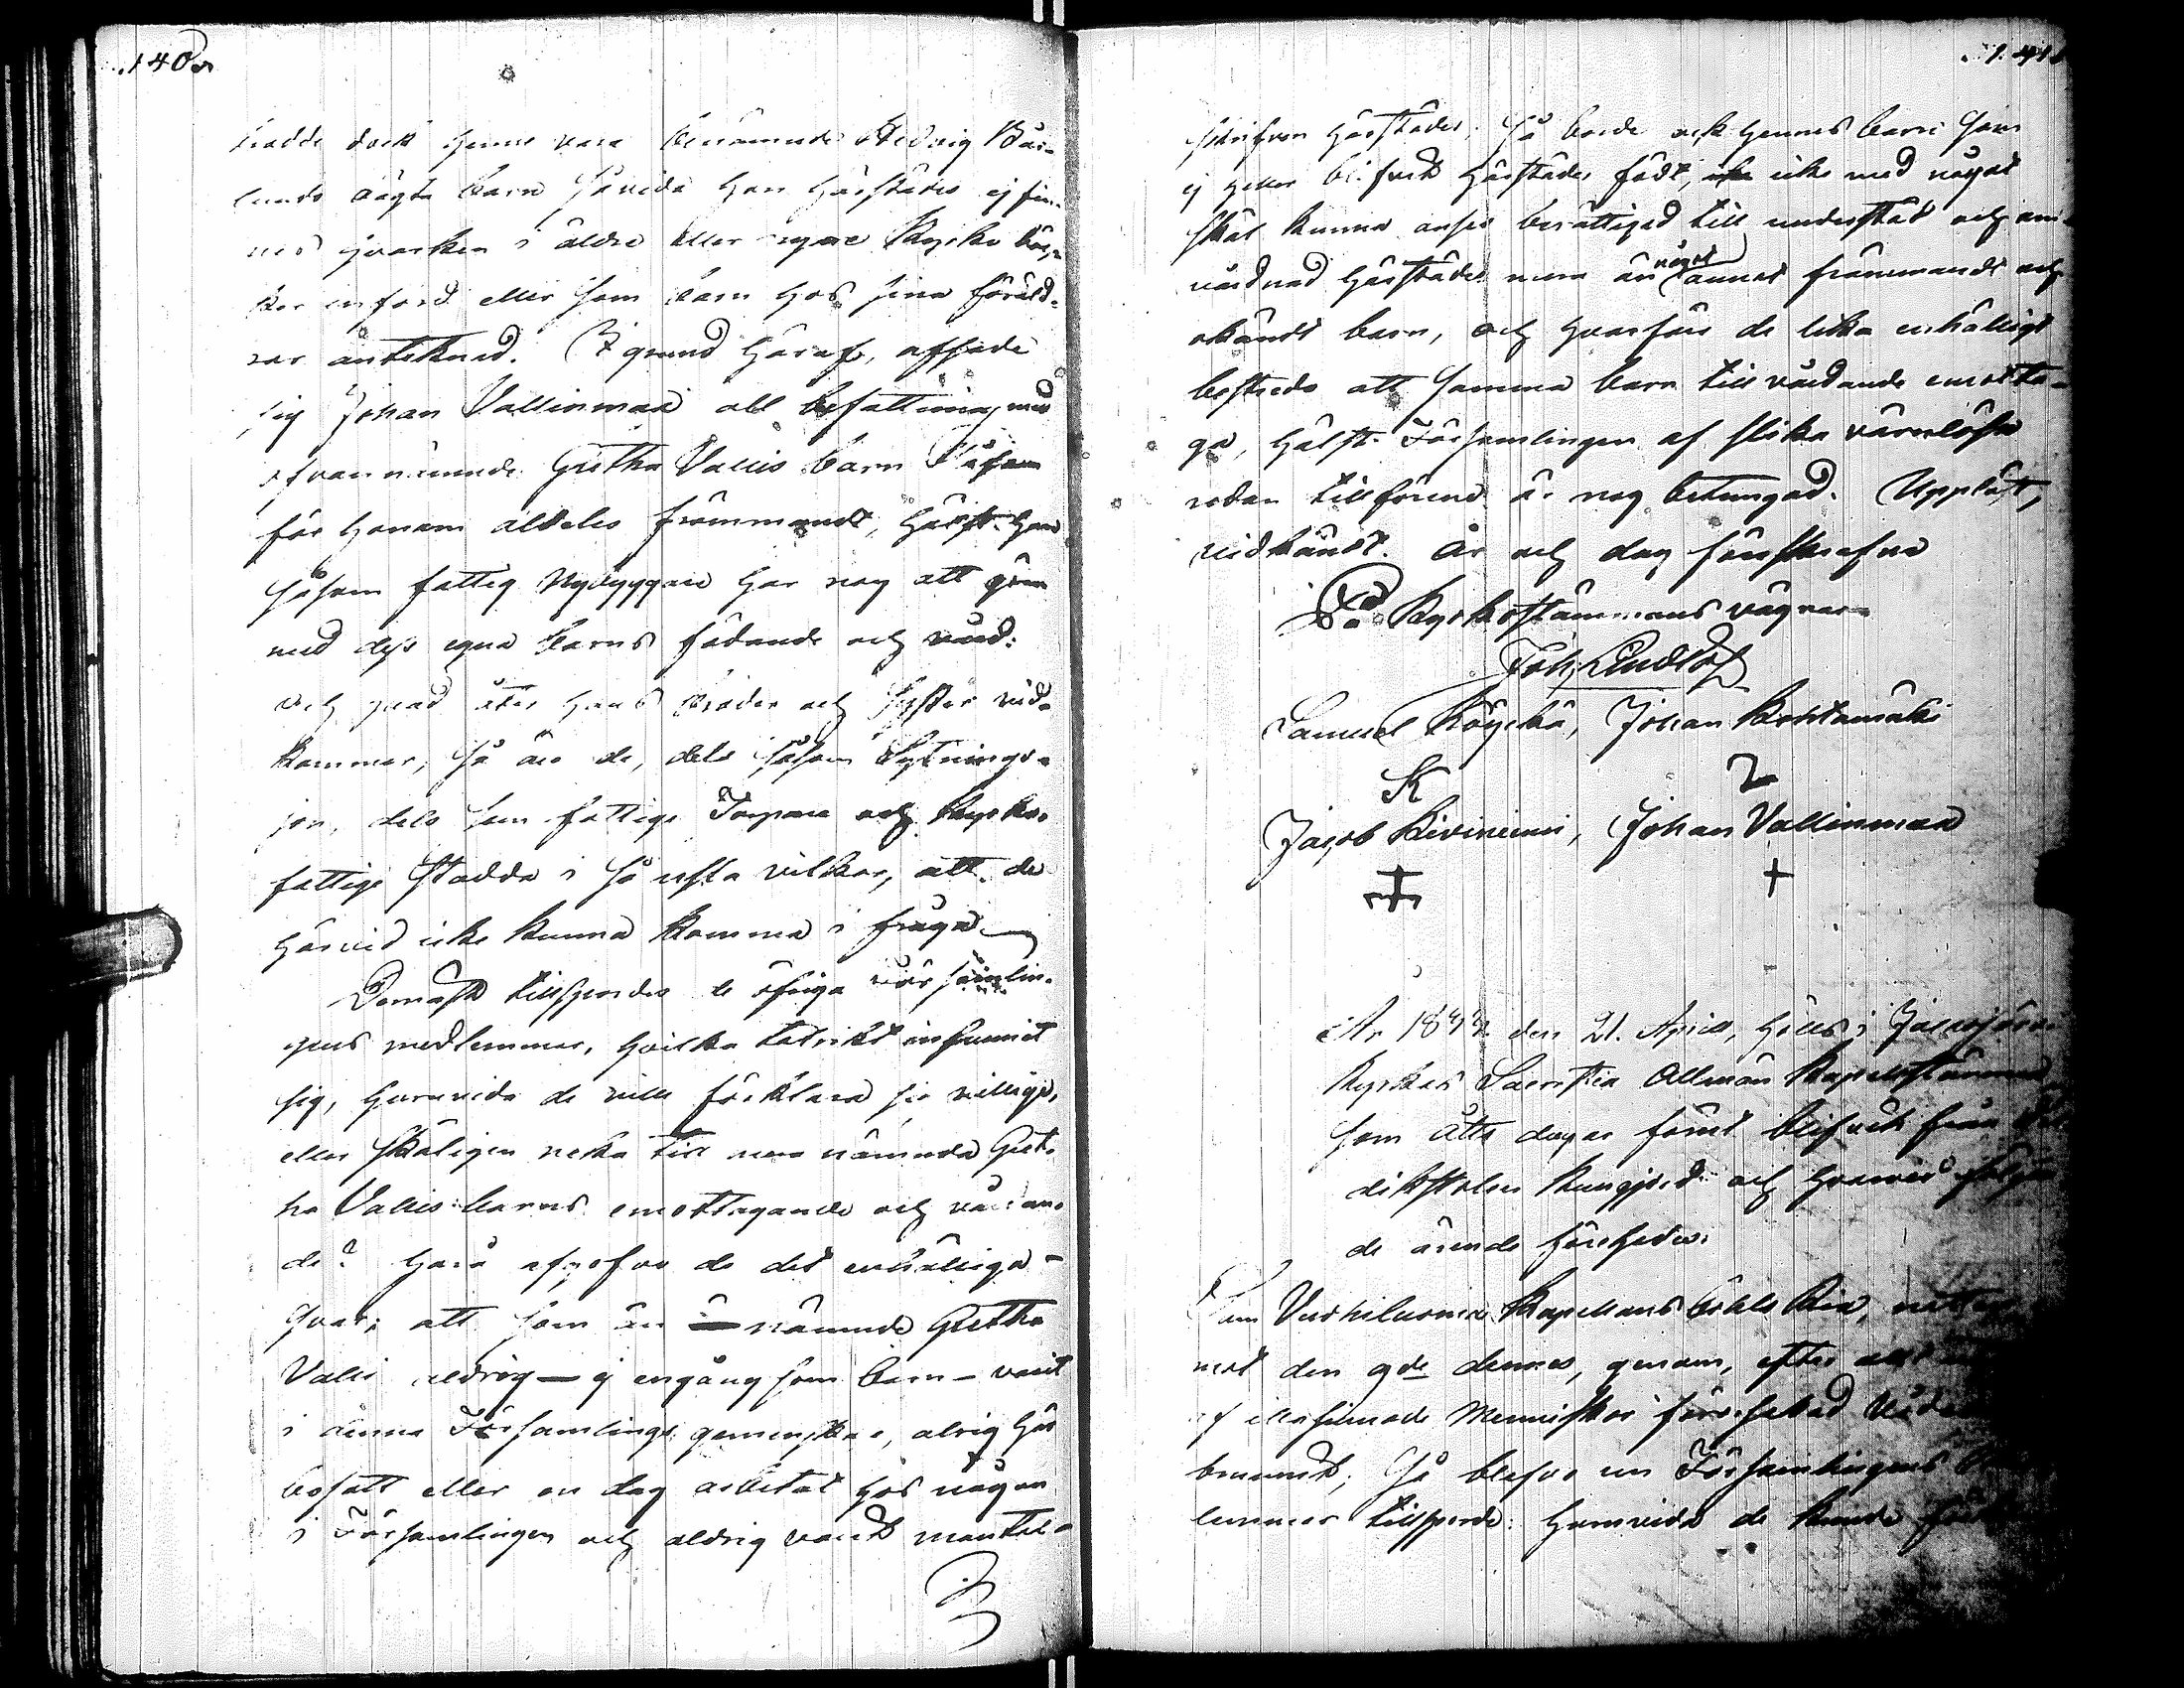 140.
trodde dock henne vara benämnde Hedvig Bär-
lunds oägta barn såvida hon härstädes ej fin-
nes hvarken i äldre eller nyare Kyrko böc-
ker införd eller som barn hos sina föräld-
rar antecknad. I grund häraf, afsade
sig Johan Vallinmaa all befattning med
ofvannämnde Gretha Vallis barn såsom
för honom aldeles främmande, hälst han
såsom fattig Nybyggare har nog att göra
med dess egna barns födande och vård:
och hvad åter hans broder och syster vid-
kommer, så äro de, dels såsom Sytningo-
jon, dels som fattige Torpare och Kyrko-
fattige stadda i så usla vilkor, att de
härvid icke kunna komma i fråga
Demäst tillspordes de öfriga församlin-
gens medlemmar, hvilka talrikt infunnit
sig, huruvida de ville förklara sig villige,
eller skäligen neka till mera nämnda Gret-
ha Vallis barns emottagande och vårdan-
de? Härå afgofvo de det enhälliga
svar; att som än nämnde Gretha
Valli aldrig — ej engång som barn — varit
i denna Församlings gemenskap, aldrig här
bosatt eller en dag arbetat hos någon
i Församlingen och aldrig varit mantal-
141.
skrifven härstädes, så borde ock hennes barn som
ej heller blifvit härstädes födt, icke med något
skäl kunna anses berättigad till understöd och om-
vårdnad härstädes mera än något annat främmande och
okändt barn, och hvarföre de lika enhälligt
bestredo att samma barn till vårdande emotta-
ga, hälst Församlingen af slika värnlösa
redan tillförene är nog betungad. Uppläst,
vidkändt. År och dag förskrefne
På Kyrkostämmans vägnar
Joh. Lindlöf
Samuel Köykkä, Johan Kohtamäki
K 2
Jacob Kiviniemi, Johan Vallinmaa
+
År 184 den 21. April, hölls i
Kyrkas Sacristia Allmän Kapellstämma
som åtta dagar förut blifvit från
dikstolen kungjord och hvarvid följan
de ärende förehades.
Som Kapellans Bohls Ria,
mot den 9de dennes, genom, efter
af illasinnade Menniskor förorsakad Våde
brunnit; Så blefvo nu Församlingens
lemmar tillsporde: huruvida de kunde